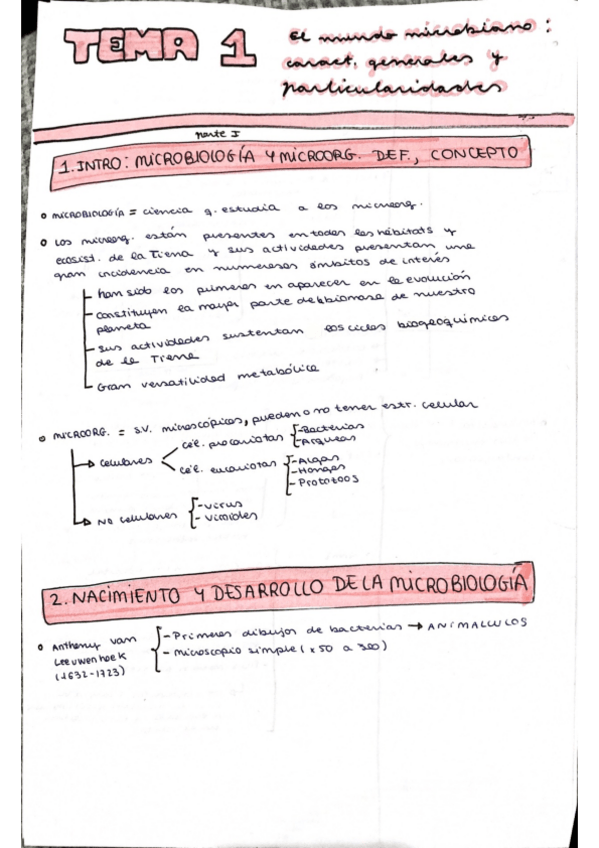 TEMA 1
El mundo microbiano:
caract. generales y
particularidades
parte I
1. INTRO: MICROBIOLOGÍA Y MICROORG. DEF., CONCEPTO
MICROBIOLOGÍA = ciencia q. estudia a los microorg.
Los microorg. están presentes en todos los hábitats y
ecosist. de la Tierra y sus actividades presentan una
gran incidencia en numerosos ámbitos de interés
- han sido los primeros en aparecer en la evolución
- constituyen la mayor parte de biomasa de nuestro
planeta
- sus actividades sustentan los ciclos biogeoquímicos
de la Tierra
- Gran versatilidad metabólica
MICROORG. = s.v. microscópicos, pueden o no tener estr. celular
→ celulares
cél. procariotas
- Bacterias
- Arqueas
cél. eucariotas
- Algas
- Hongos
- Protozoos
→ No celulares
- virus
- viroides
2. NACIMIENTO Y DESARROLLO DE LA MICROBIOLOGÍA
Anthony van
Leeuwenhoek
(1632-1723)
- Primeros dibujos de bacterias → ANIMALCULOS
- microscopio simple (x50 a 300)